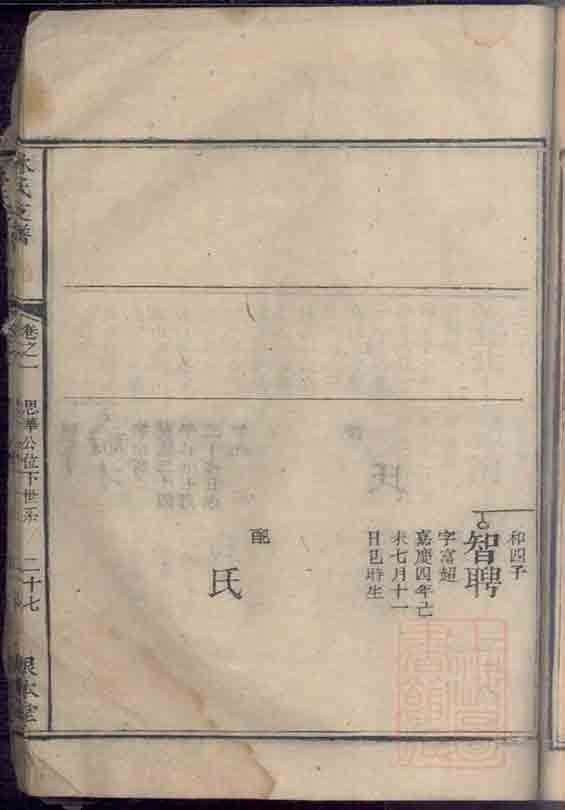 和四子
智聘
字富超
嘉慶四年己
未七月十一
日巳時生
配
氏
林氏支譜
卷之一
思華公位下世系
二十七
根本堂